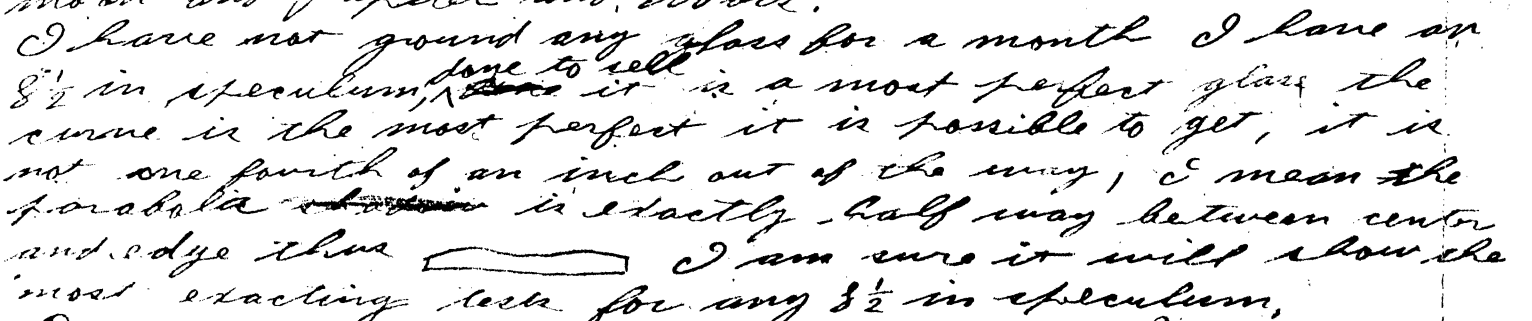 I have not ground any glass for a month I have an
done to sell
8½ in speculum, it is a most perfect glass the
curve is the most perfect it is possible to get, it is
not one fourth of an inch out of the way, I mean the
parabola is exactly half way between center
and edge thus I am sure it will show the
most exacting test for any 8½ in speculum.